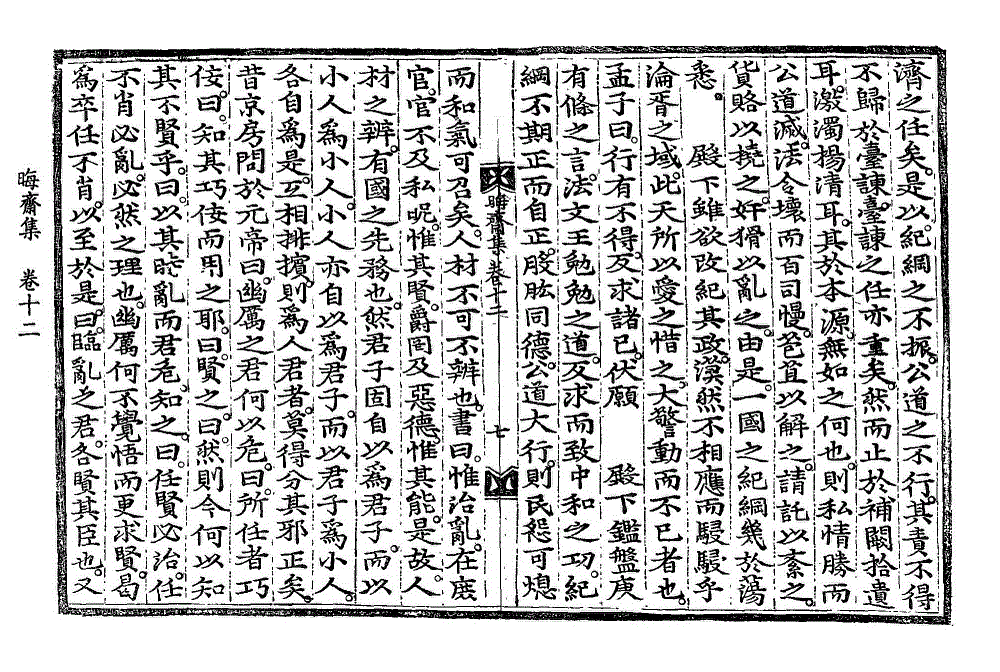 濟之任矣。是以。紀綱之不振。公道之不行。其責不得
不歸於臺諫。臺諫之任亦重矣。然而止於補闕拾遺
耳。激濁揚淸耳。其於本源。無如之何也。則私情勝而
公道滅。法令壞而百司慢。苞苴以解之。請託以紊之。
貨賂以撓之。奸猾以亂之。由是一國之紀綱幾於蕩
悉。 殿下雖欲改紀其政。漠然不相應而駸駸乎
淪胥之域。此天所以愛之惜之。大警動而不已者也。
孟子曰。行有不得。反求諸已。伏願 殿下鑑盤庚
有條之言。法文王勉勉之道。反求而致中和之功。紀
綱不期正而自正。股肱同德。公道大行。則民怨可熄
晦齋集卷十二
七
而和氣可召矣。人材不可不辨也。書曰。惟治亂。在庶
官。官不及私昵。惟其賢。爵罔及惡德。惟其能。是故。人
材之辨。有國之先務也。然君子固自以爲君子。而以
小人爲小人。小人亦自以爲君子。而以君子爲小人。
各自爲是。互相排擯。則爲人君者。莫得分其邪正矣。
昔京房問於元帝曰。幽厲之君何以危。曰。所任者巧
佞。曰。知其巧佞而用之耶。曰賢之。曰然則今何以知
其不賢乎。曰。以其時亂而君危。知之。曰。任賢必治。任
不肖必亂。必然之理也。幽厲何不覺悟而更求賢。曷
爲卒任不肖。以至於是。曰。臨亂之君。各賢其臣也。又
晦齋集 卷十二